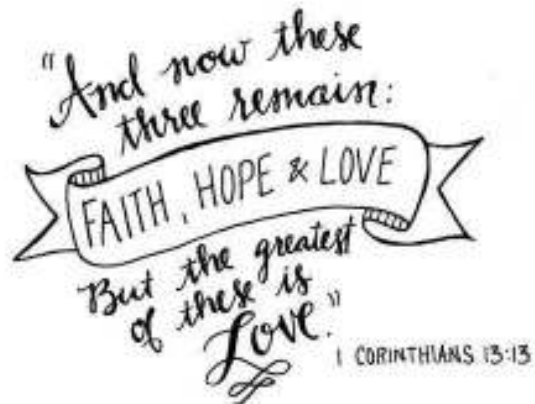 "And now these
three remain:
FAITH, HOPE & LOVE
But the greatest
of these is
Love."
1 CORINTHIANS 13:13